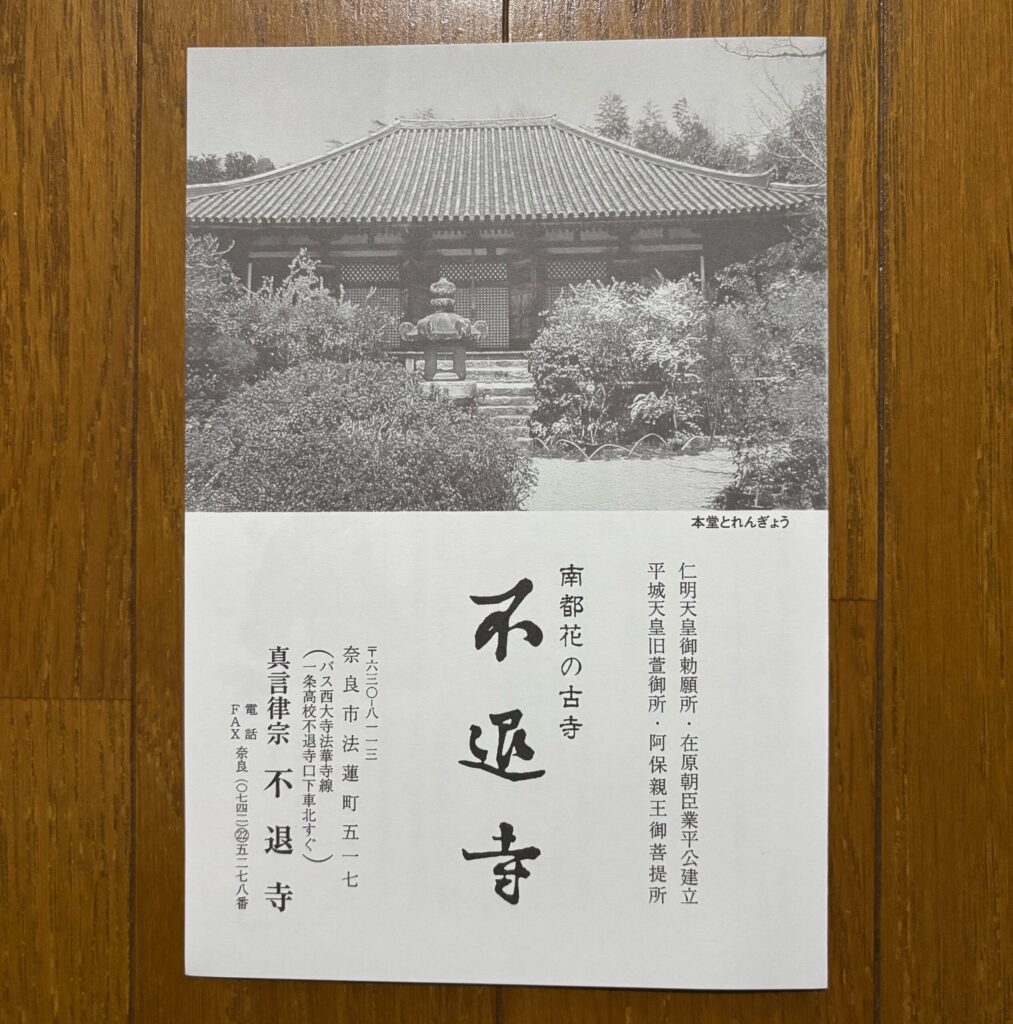 本堂とれんぎょう
仁明天皇御勅願所・在原朝臣業平公建立
平城天皇旧萱御所・阿保親王御菩提所
南都花の古寺
不退寺
〒六三〇-八一一三
奈良市法蓮町五一七
(バス西大寺法華寺線
一条高校不退寺口下車北すぐ)
真言律宗 不退寺
電話
FAX 奈良(〇七四二)㉒五二七八番